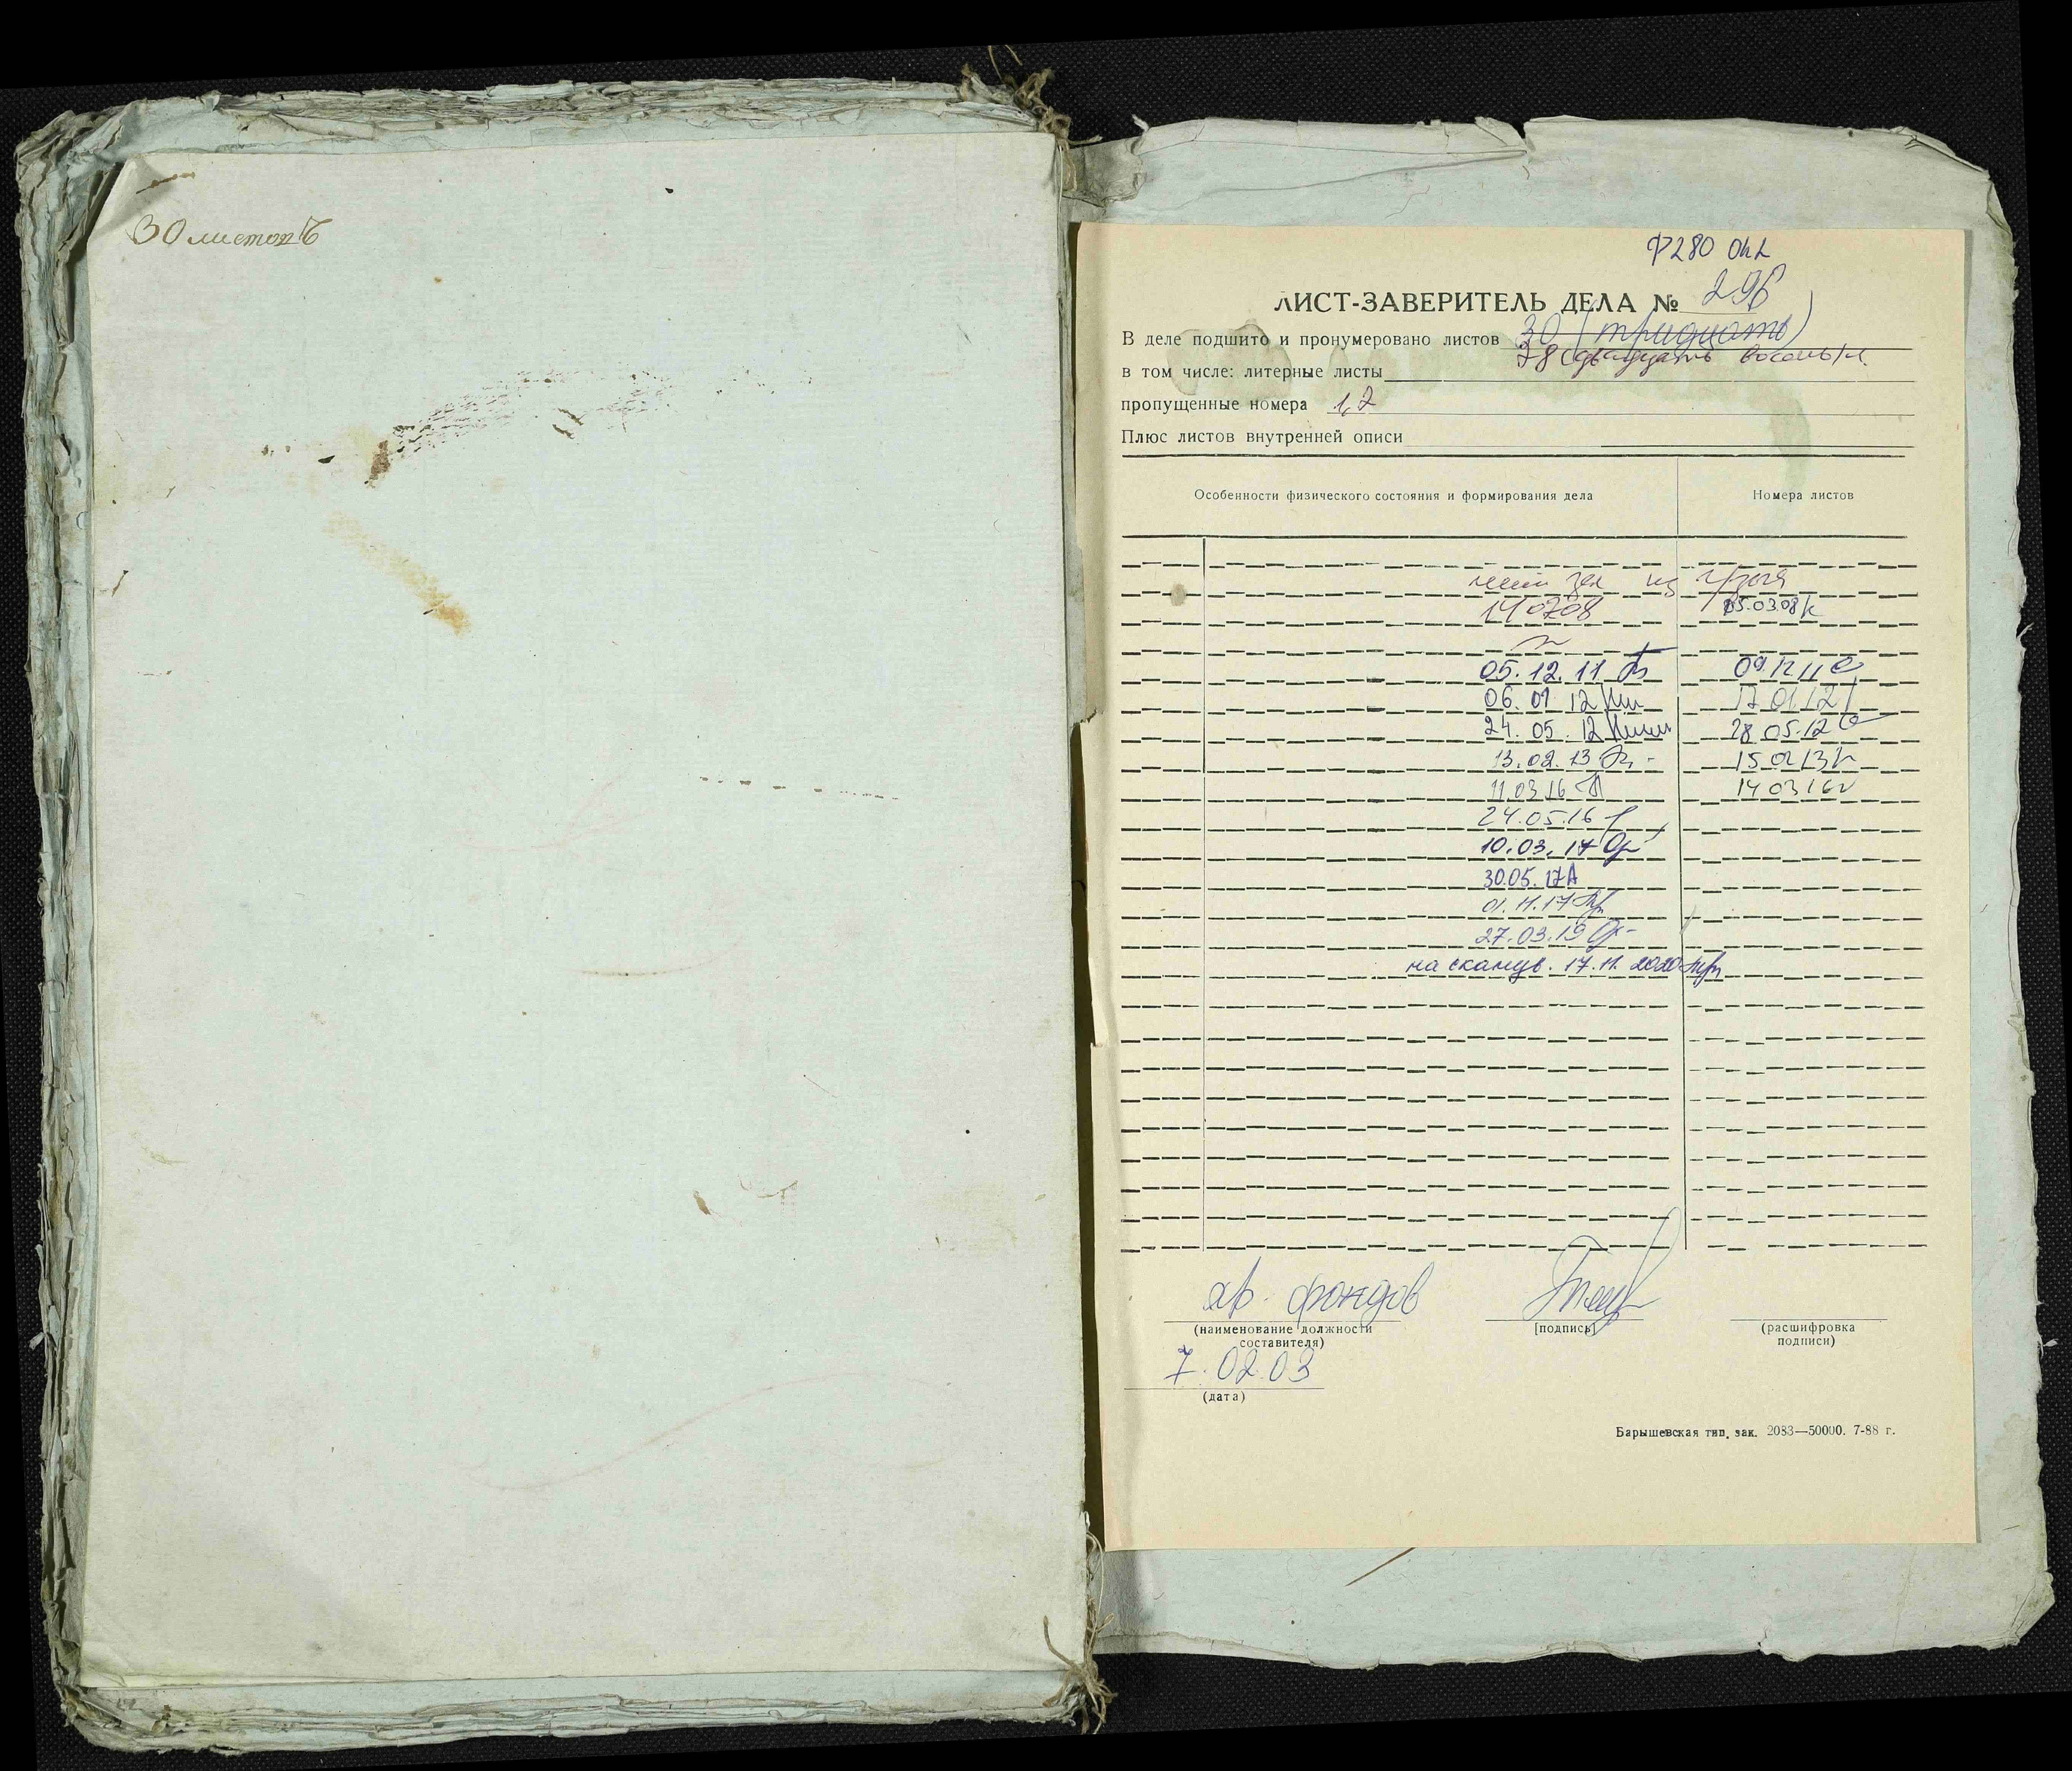 30 листовъ
Ф280 Оп2
ЛИСТ-ЗАВЕРИТЕЛЬ ДЕЛА № 296
В деле подшито и пронумеровано листов 30 (тридцать)
28 (двадцать восемь) л.
в том числе: литерные листы
пропущенные номера 1,2
Плюс листов внутренней описи
Особенности физического состояния и формирования дела Номера листов
из
140708 05.03.08
05.12.11 09.12.11
06.01.12 17.01.12
24.05.12 28.05.12
13.02.13 15.02.13
11.03.16 14.03.16
24.05.16
10.03.17
30.05.17
01.11.17
27.03.19
на сканир. 17.11.2020
хр. фондов
(наименование должности составителя) [подпись] (расшифровка подписи)
7.02.03
(дата)
Барышевская тип. зак. 2083—50000. 7-88 г.